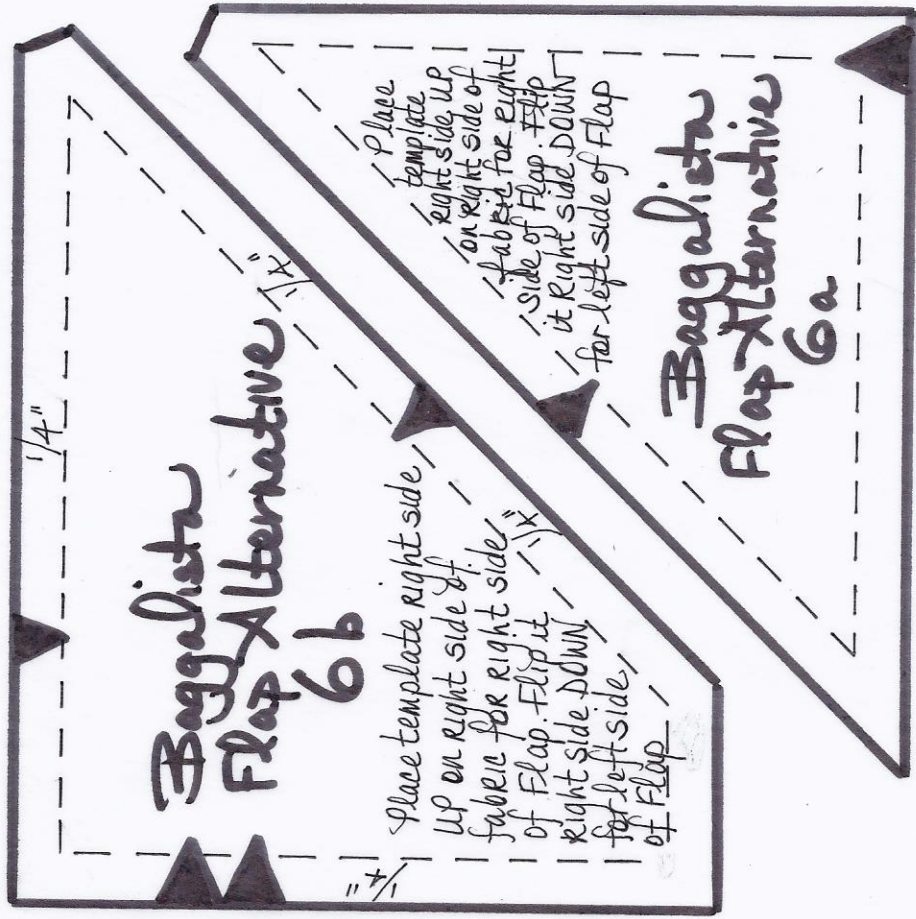 1/4"
Baggalista
Flap Alternative
6b
Place template right side
UP on Right side of
fabric for Right side
of Flap. Flip it
Right side DOWN
for left side
of Flap
1/4"
1/4"
1/4"
Place
template
right side UP
on Right side of
fabric for Right
side of Flap. Flip
it Right side DOWN
for left side of Flap
Baggalista
Flap Alternative
6a